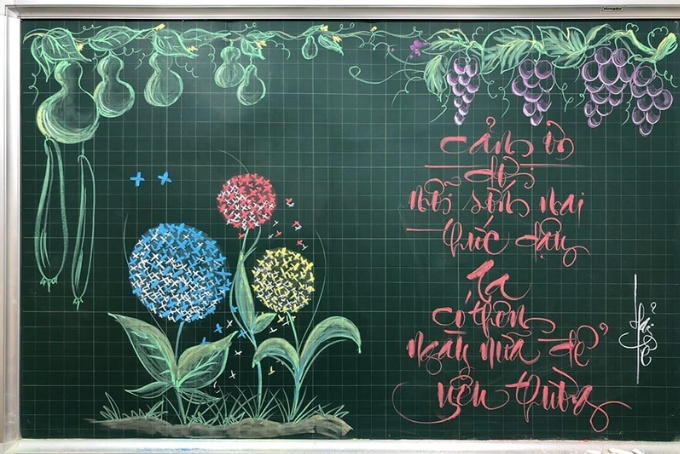 cảm ơn
đời
mỗi sớm mai
thức dậy
Ta
có thêm
ngày nữa để
yêu thương